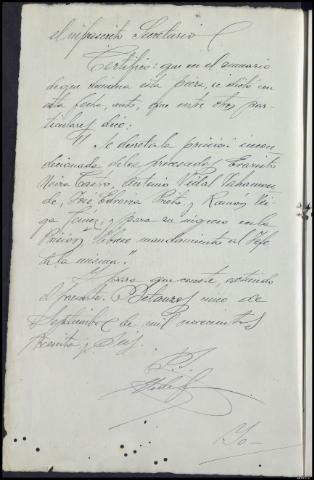 el infrascrito Secretario
Certifico: que en el sumario
de que dimana esta pieza, se dictó en
esta fecha, auto, que entre otros par-
ticulares dice:
"Se decreta la prision incon
dicionada de los procesados Evaristo
Neira Castro, Antonio Vidal
de, José Edreira Prieto, y Ramón Vei
ga y para su ingreso en la
Prision líbrese mandamiento al Jefe
de la misma."
Y para que conste, extiendo
el presente. Betanzos nueve de
Septiembre de mil novecientos
treinta y seis.